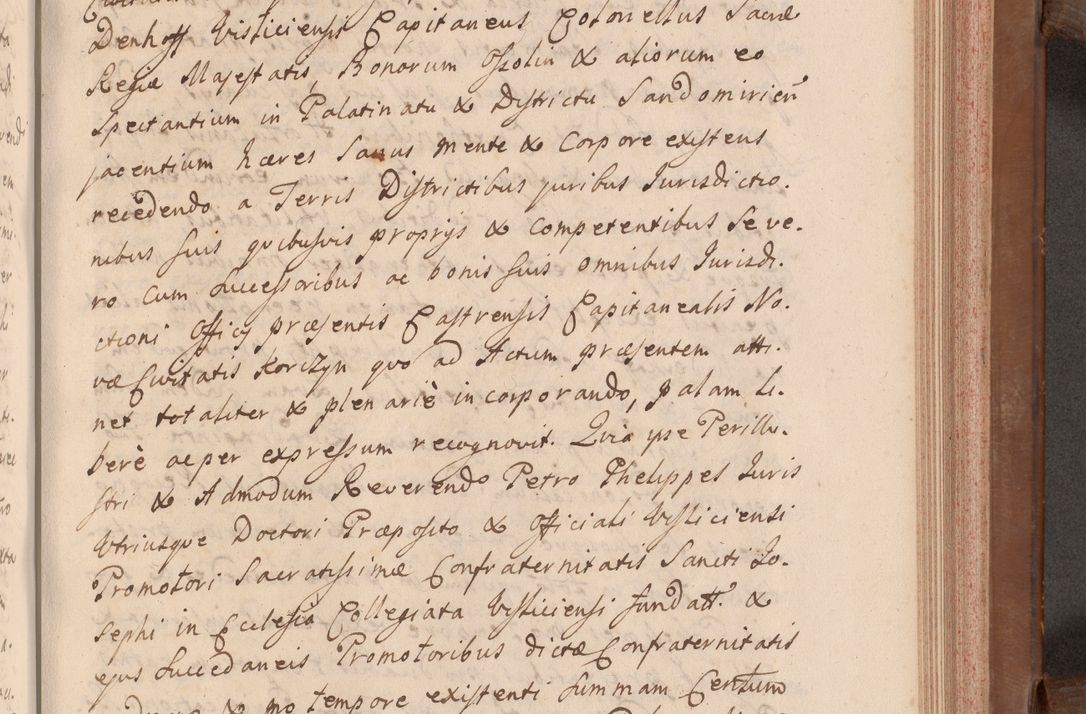 Denhoff Visliciensis Capitaneus Colonellus Sacræ
Regiæ Majestatis, Bonorum Ossolin & aliorum eo
spectantium in Palatinatu & Districtu Sandomirien̄
jacentium hæres Sanus mente & Corpore existens
recedendo a Terris Districtibus juribus Jurisdictio.
nibus suis quibusvis proprijs & Competentibus se ve.
ro Cum Successoribus ac bonis suis omnibus Jurisdi.
ctioni Officij præsentis Castrensis Capitanealis No.
væ Civitatis Korczyn quo ad Actum præsentem atti.
net totaliter & plenariè incorporando, palam Li.
berè ac per expressum recognovit. Quia ipse Perillu.
stri & Admodum Reverendo Petro Phelippes Juris
Utriusque Doctori Præposito & Officiali Visliciensi
Promotori Sacratissimæ Confraternitatis Sancti Jo.
sephi in Ecclesia Collegiata Visliciensi fundatt. &
ejus Succedaneis Promotoribus dictæ Confraternitatis
& pro tempore existenti Summam Centum